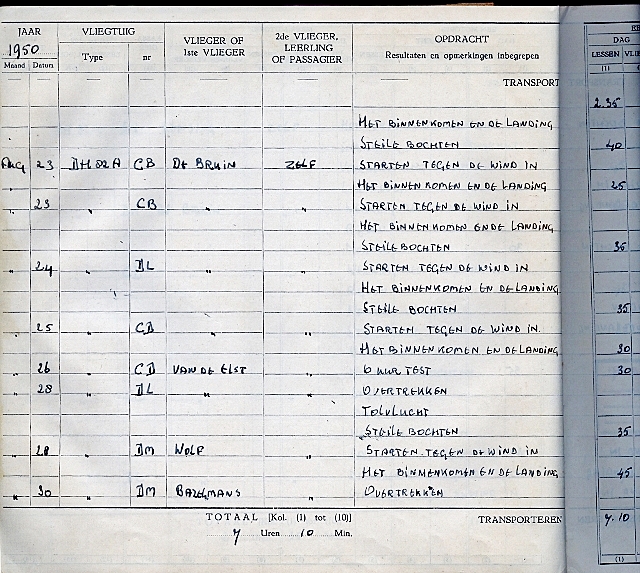 JAAR VLIEGTUIG VLIEGER OF 1STE VLIEGER 2de VLIEGER, LEERLING OF PASSAGIER OPDRACHT DAG
1950 Type nr Resultaten en opmerkingen inbegrepen LESSEN
Maand Datum (1)
TRANSPORT 2.35
HET BINNENKOMEN EN DE LANDING
STEILE BOCHTEN 40
Aug 23 DH 82 A CB DE BRUIN ZELF STARTEN TEGEN DE WIND IN
HET BINNENKOMEN EN DE LANDING 25
" 23 " CB " " STARTEN TEGEN DE WIND IN
HET BINNENKOMEN EN DE LANDING
STEILE BOCHTEN 35
" 24 " DL " " STARTEN TEGEN DE WIND IN
HET BINNENKOMEN EN DE LANDING
STEILE BOCHTEN 35
" 25 " CD " " STARTEN TEGEN DE WIND IN
HET BINNENKOMEN EN DE LANDING 30
" 26 " CD VAN DE ELST " 6 UUR TEST 30
" 28 " DL " " OVERTREKKEN
TOLVLUCHT
STEILE BOCHTEN 35
" 28 " DM WOLF " STARTEN TEGEN DE WIND IN
HET BINNENKOMEN EN DE LANDING 45
" 30 " DM " OVERTREKKEN
TOTAAL [Kol. (1) tot (10)] TRANSPORTEREN 7.10
7 Uren 10 Min.
(1)